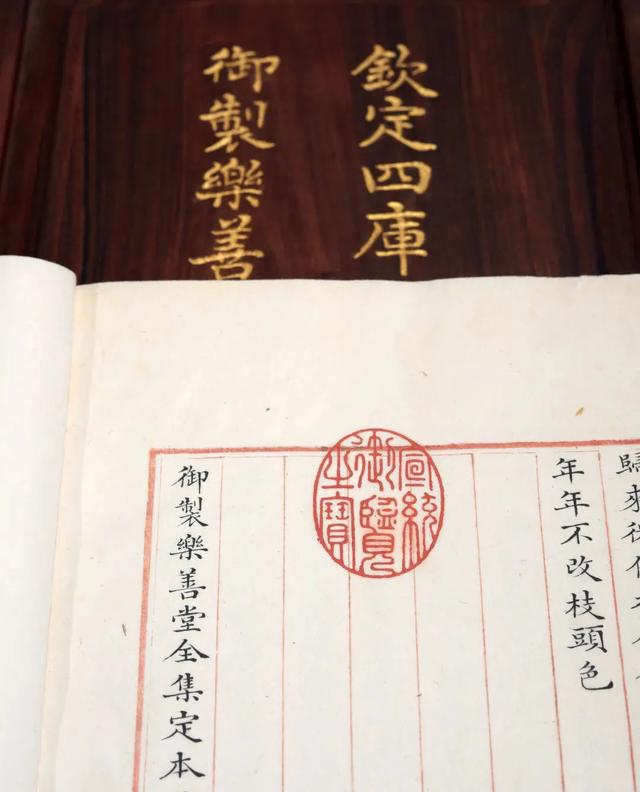 欽定四庫
御製樂善
宣統
御覽
之寶
年年不改枝頭色
御製樂善堂全集定本